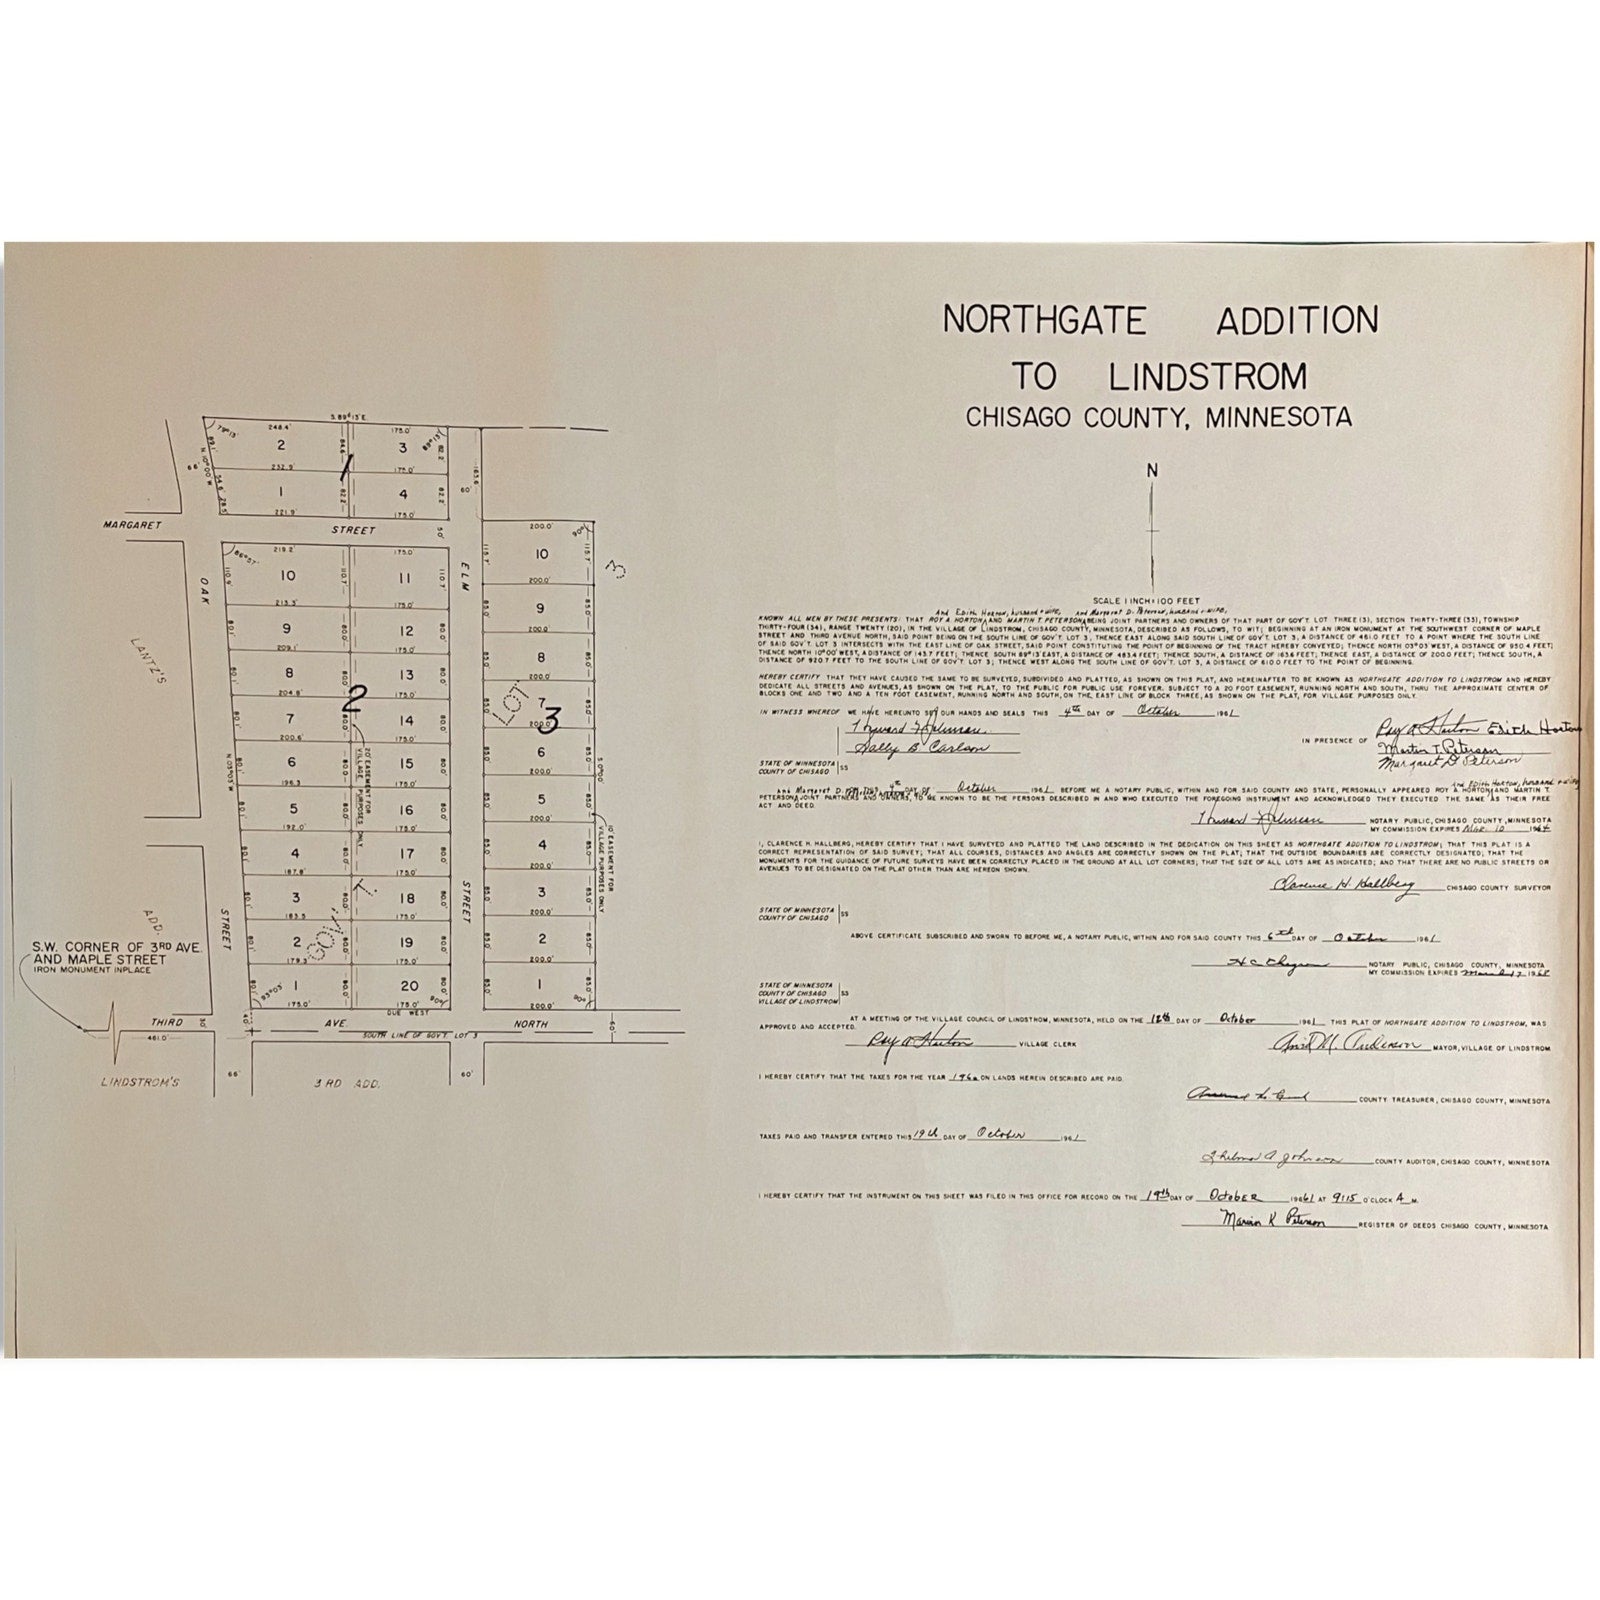 NORTHGATE ADDITION
TO LINDSTROM
CHISAGO COUNTY, MINNESOTA
N
SCALE 1 INCH=100 FEET
And Edith Horton, husband & wife, and Margaret D. Peterson, husband & wife,
KNOWN ALL MEN BY THESE PRESENTS: THAT ROY A. HORTON AND MARTIN T. PETERSON BEING JOINT PARTNERS AND OWNERS OF THAT PART OF GOV'T. LOT THREE (3), SECTION THIRTY-THREE (33), TOWNSHIP
THIRTY-FOUR (34), RANGE TWENTY (20), IN THE VILLAGE OF LINDSTROM, CHISAGO COUNTY, MINNESOTA, DESCRIBED AS FOLLOWS, TO WIT; BEGINNING AT AN IRON MONUMENT AT THE SOUTHWEST CORNER OF MAPLE
STREET AND THIRD AVENUE NORTH, SAID POINT BEING ON THE SOUTH LINE OF GOV'T. LOT 3, THENCE EAST ALONG SAID SOUTH LINE OF GOV'T. LOT 3, A DISTANCE OF 461.0 FEET TO A POINT WHERE THE SOUTH LINE
OF SAID GOV'T. LOT 3 INTERSECTS WITH THE EAST LINE OF OAK STREET, SAID POINT CONSTITUTING THE POINT OF BEGINNING OF THE TRACT HEREBY CONVEYED; THENCE NORTH 03°03' WEST, A DISTANCE OF 950.4 FEET;
THENCE NORTH 10°00' WEST, A DISTANCE OF 143.7 FEET; THENCE SOUTH 89°13' EAST, A DISTANCE OF 483.4 FEET; THENCE SOUTH, A DISTANCE OF 163.6 FEET; THENCE EAST, A DISTANCE OF 200.0 FEET; THENCE SOUTH, A
DISTANCE OF 920.7 FEET TO THE SOUTH LINE OF GOV'T. LOT 3; THENCE WEST ALONG THE SOUTH LINE OF GOV'T. LOT 3, A DISTANCE OF 610.0 FEET TO THE POINT OF BEGINNING.
HEREBY CERTIFY THAT THEY HAVE CAUSED THE SAME TO BE SURVEYED, SUBDIVIDED AND PLATTED, AS SHOWN ON THIS PLAT, AND HEREINAFTER TO BE KNOWN AS NORTHGATE ADDITION TO LINDSTROM AND HEREBY
DEDICATE ALL STREETS AND AVENUES, AS SHOWN ON THE PLAT, TO THE PUBLIC FOR PUBLIC USE FOREVER. SUBJECT TO A 20 FOOT EASEMENT, RUNNING NORTH AND SOUTH, THRU THE APPROXIMATE CENTER OF
BLOCKS ONE AND TWO AND A TEN FOOT EASEMENT, RUNNING NORTH AND SOUTH, ON THE EAST LINE OF BLOCK THREE, AS SHOWN ON THE PLAT, FOR VILLAGE PURPOSES ONLY.
IN WITNESS WHEREOF WE HAVE HEREUNTO SET OUR HANDS AND SEALS THIS 4th DAY OF October 1961
Sally B. Carlson
IN PRESENCE OF Roy A Horton Edith Horton
Martin T. Peterson
Margaret D Peterson
STATE OF MINNESOTA
COUNTY OF CHISAGO SS
And Edith Horton, husband & wife
and Margaret D. 4th DAY OF October 1961 BEFORE ME A NOTARY PUBLIC, WITHIN AND FOR SAID COUNTY AND STATE, PERSONALLY APPEARED ROY A. HORTON AND MARTIN T.
PETERSON, JOINT PARTNERS AND OWNERS, TO ME KNOWN TO BE THE PERSONS DESCRIBED IN AND WHO EXECUTED THE FOREGOING INSTRUMENT AND ACKNOWLEDGED THEY EXECUTED THE SAME AS THEIR FREE
ACT AND DEED.
NOTARY PUBLIC, CHISAGO COUNTY, MINNESOTA
MY COMMISSION EXPIRES Mar. 10 1964
I, CLARENCE H. HALLBERG, HEREBY CERTIFY THAT I HAVE SURVEYED AND PLATTED THE LAND DESCRIBED IN THE DEDICATION ON THIS SHEET AS NORTHGATE ADDITION TO LINDSTROM; THAT THIS PLAT IS A
CORRECT REPRESENTATION OF SAID SURVEY; THAT ALL COURSES, DISTANCES AND ANGLES ARE CORRECTLY SHOWN ON THE PLAT; THAT THE OUTSIDE BOUNDARIES ARE CORRECTLY DESIGNATED; THAT THE
MONUMENTS FOR THE GUIDANCE OF FUTURE SURVEYS HAVE BEEN CORRECTLY PLACED IN THE GROUND AT ALL LOT CORNERS; THAT THE SIZE OF ALL LOTS ARE AS INDICATED; AND THAT THERE ARE NO PUBLIC STREETS OR
AVENUES TO BE DESIGNATED ON THE PLAT OTHER THAN ARE HEREON SHOWN.
Clarence H. Hallberg CHISAGO COUNTY SURVEYOR
STATE OF MINNESOTA
COUNTY OF CHISAGO SS
ABOVE CERTIFICATE SUBSCRIBED AND SWORN TO BEFORE ME, A NOTARY PUBLIC, WITHIN AND FOR SAID COUNTY THIS 6th DAY OF October 1961
NOTARY PUBLIC, CHISAGO COUNTY, MINNESOTA
MY COMMISSION EXPIRES March 7 1968
STATE OF MINNESOTA
COUNTY OF CHISAGO SS
VILLAGE OF LINDSTROM
AT A MEETING OF THE VILLAGE COUNCIL OF LINDSTROM, MINNESOTA, HELD ON THE 12th DAY OF October 1961 THIS PLAT OF NORTHGATE ADDITION TO LINDSTROM, WAS
APPROVED AND ACCEPTED.
Roy A Horton VILLAGE CLERK
Arvid M. Anderson MAYOR, VILLAGE OF LINDSTROM
I HEREBY CERTIFY THAT THE TAXES FOR THE YEAR 1960 ON LANDS HEREIN DESCRIBED ARE PAID.
COUNTY TREASURER, CHISAGO COUNTY, MINNESOTA
TAXES PAID AND TRANSFER ENTERED THIS 19th DAY OF October 1961
Thelma A Johnson COUNTY AUDITOR, CHISAGO COUNTY, MINNESOTA
I HEREBY CERTIFY THAT THE INSTRUMENT ON THIS SHEET WAS FILED IN THIS OFFICE FOR RECORD ON THE 19th DAY OF October 1961 AT 9:15 O'CLOCK A M.
Marvin K Peterson REGISTER OF DEEDS CHISAGO COUNTY, MINNESOTA
S. 89°13' E
248.4' 175.0'
79°13' 2 3 89°13'
89.1' 84.6' 82.2'
N 10°00' W
66' 232.9' 1 175.0'
54.6' 1 82.2' 4 82.2'
28.5' 221.9' 175.0'
163.6
60'
MARGARET STREET 50'
219.2' 175.0' 200.0'
86°57' 90°
110.9' 10 110.7' 11 110.7' 115.7' 10 115.7'
213.3' 175.0' 200.0'
80.1' 9 80.0' 12 80.0' 85.0' 9 85.0'
209.1' 175.0' 200.0'
80.1' 8 80.0' 13 80.0' 85.0' 8 85.0'
204.8' 175.0' 200.0'
80.1' 7 80.0' 14 80.0' 85.0' 7 85.0'
200.6' 175.0' 200.0'
80.1' 6 80.0' 15 80.0' 85.0' 6 85.0'
196.3 175.0' 200.0'
80.1' 5 80.0' 16 80.0' 85.0' 5 85.0'
192.0' 175.0' 200.0'
80.1' 4 80.0' 17 80.0' 85.0' 4 85.0'
187.8' 175.0' 200.0'
80.1' 3 80.0' 18 80.0' 85.0' 3 85.0'
183.5 175.0' 200.0'
80.1' 2 80.0' 19 80.0' 85.0' 2 85.0'
179.3' 175.0' 200.0'
80.1' 1 80.0' 20 80.0' 85.0' 1 85.0'
93°03' 90° 90°
175.0' 175.0' 200.0'
2
3
OAK
STREET
N 03°03' W
ELM
STREET
S 0°00'
20' EASEMENT FOR
VILLAGE PURPOSES ONLY
10' EASEMENT FOR
VILLAGE PURPOSES ONLY
GOV'T. LOT 3
LANTZ'S
ADD.
S.W. CORNER OF 3RD AVE.
AND MAPLE STREET
IRON MONUMENT INPLACE
DUE WEST
THIRD 30' 40' AVE. NORTH 60'
SOUTH LINE OF GOV'T LOT 3
461.0'
66' 60'
LINDSTROM'S 3 RD ADD.